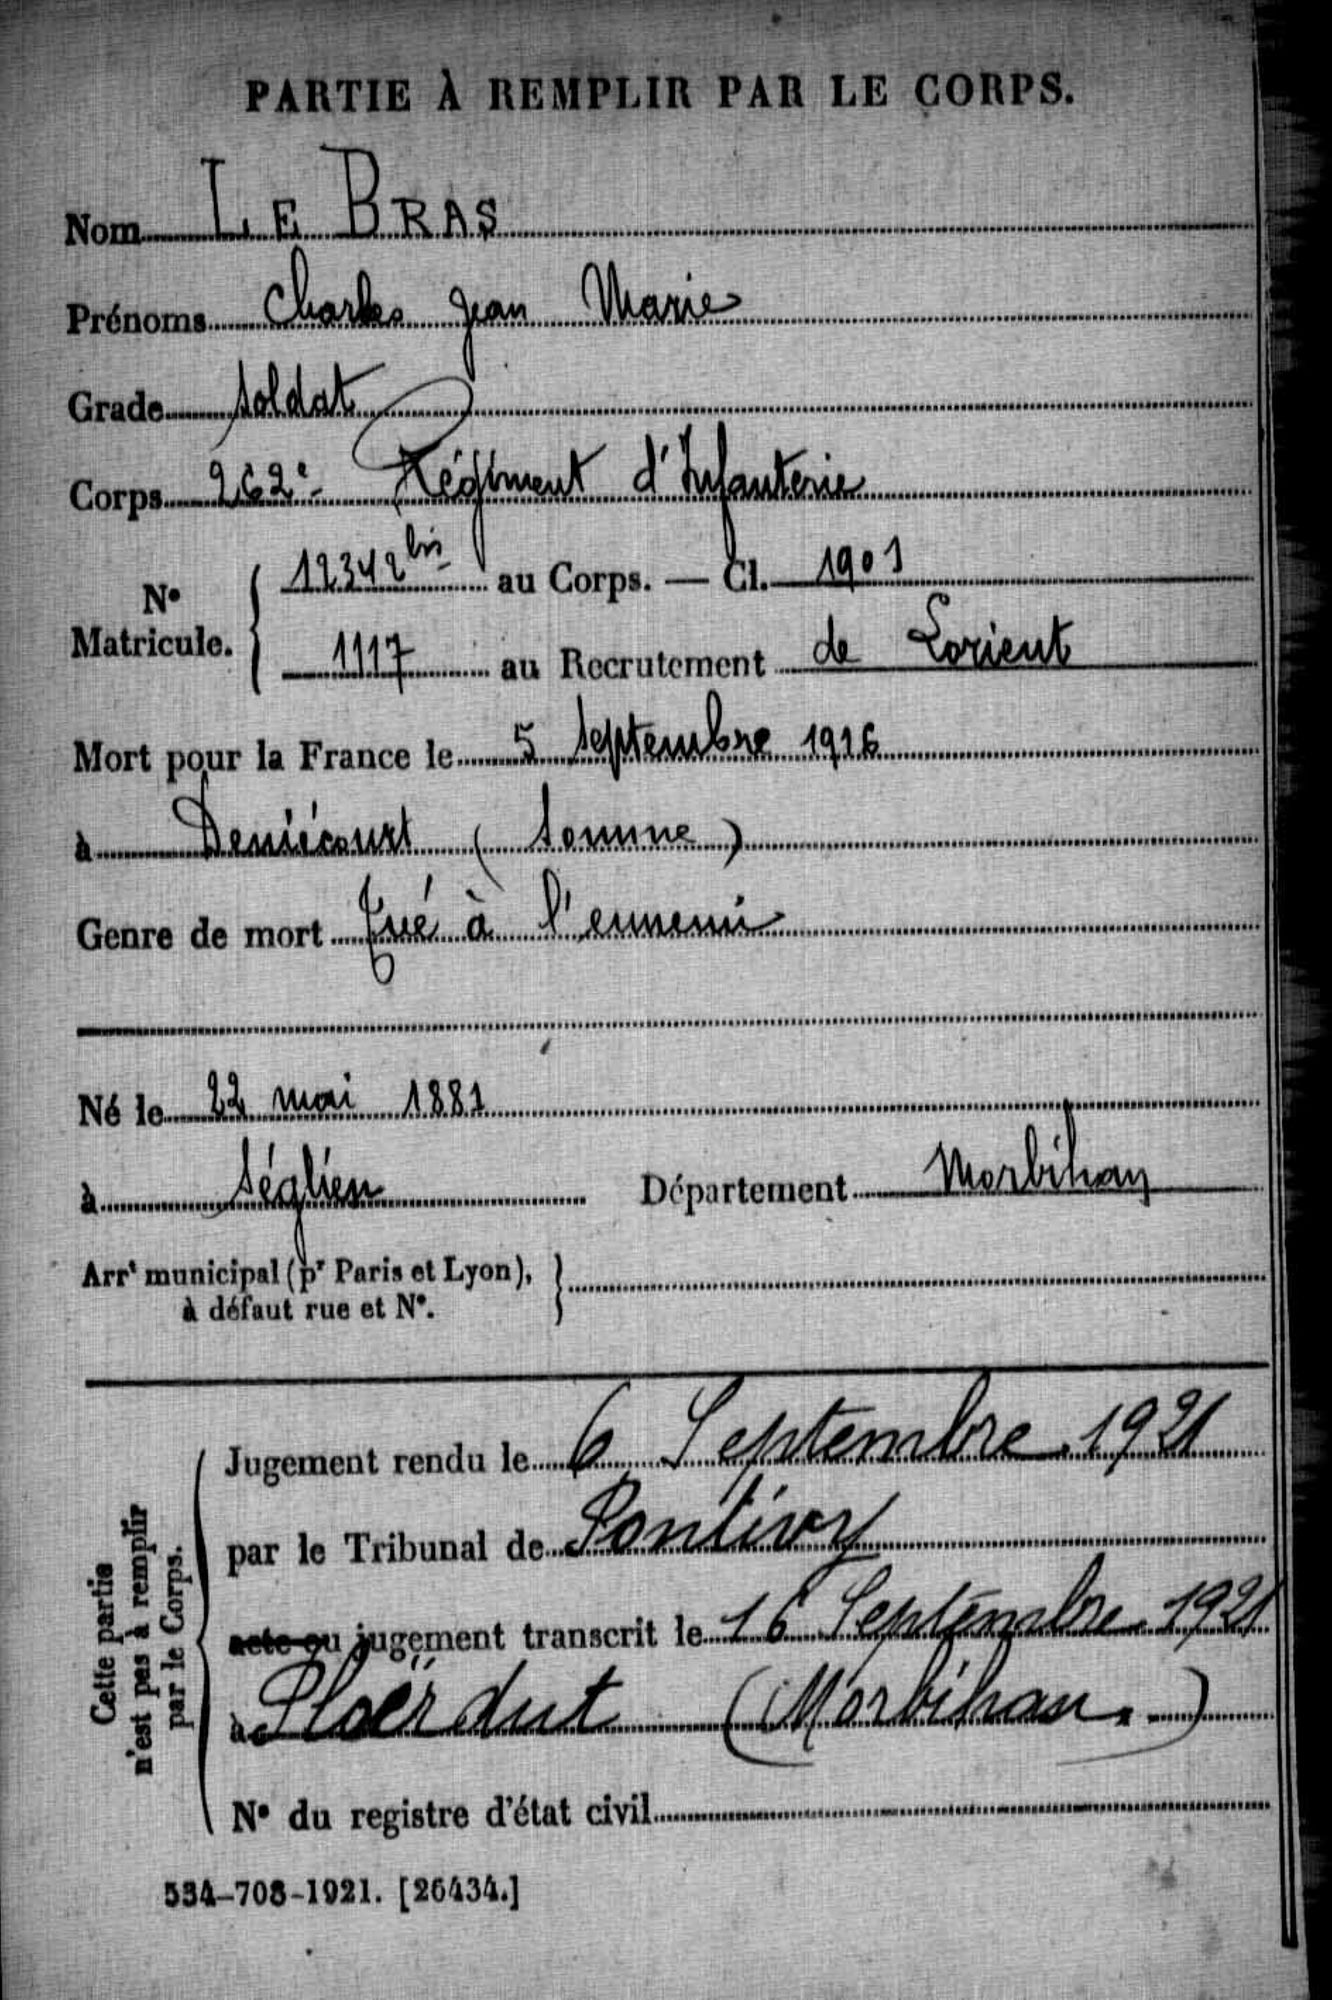 PARTIE À REMPLIR PAR LE CORPS.
Nom LE BRAS
Prénoms Charles Jean Marie
Grade soldat
Corps 262e Régiment d'Infanterie
N° Matricule. 12342 bis au Corps. — Cl. 1901
1117 au Recrutement de Lorient
Mort pour la France le 5 septembre 1916
à Deniécourt (Somme)
Genre de mort Tué à l'ennemi
Né le 22 mai 1881
à Séglien Département Morbihan
Arrt municipal (pr Paris et Lyon),
à défaut rue et N°.
Cette partie
n'est pas à remplir
par le Corps.
Jugement rendu le 6 Septembre 1921
par le Tribunal de Pontivy
acte ou jugement transcrit le 16 Septembre 1921
à Ploërdut (Morbihan.)
N° du registre d'état civil
534-708-1921. [26434.]